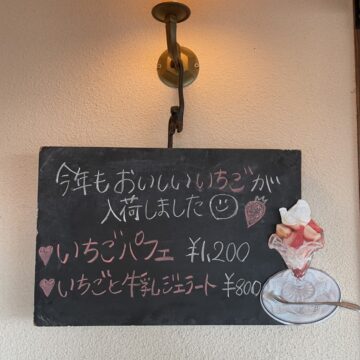 今年もおいしいいちごが
入荷しました
いちごパフェ ¥1,200
いちごと牛乳ジェラート ¥800